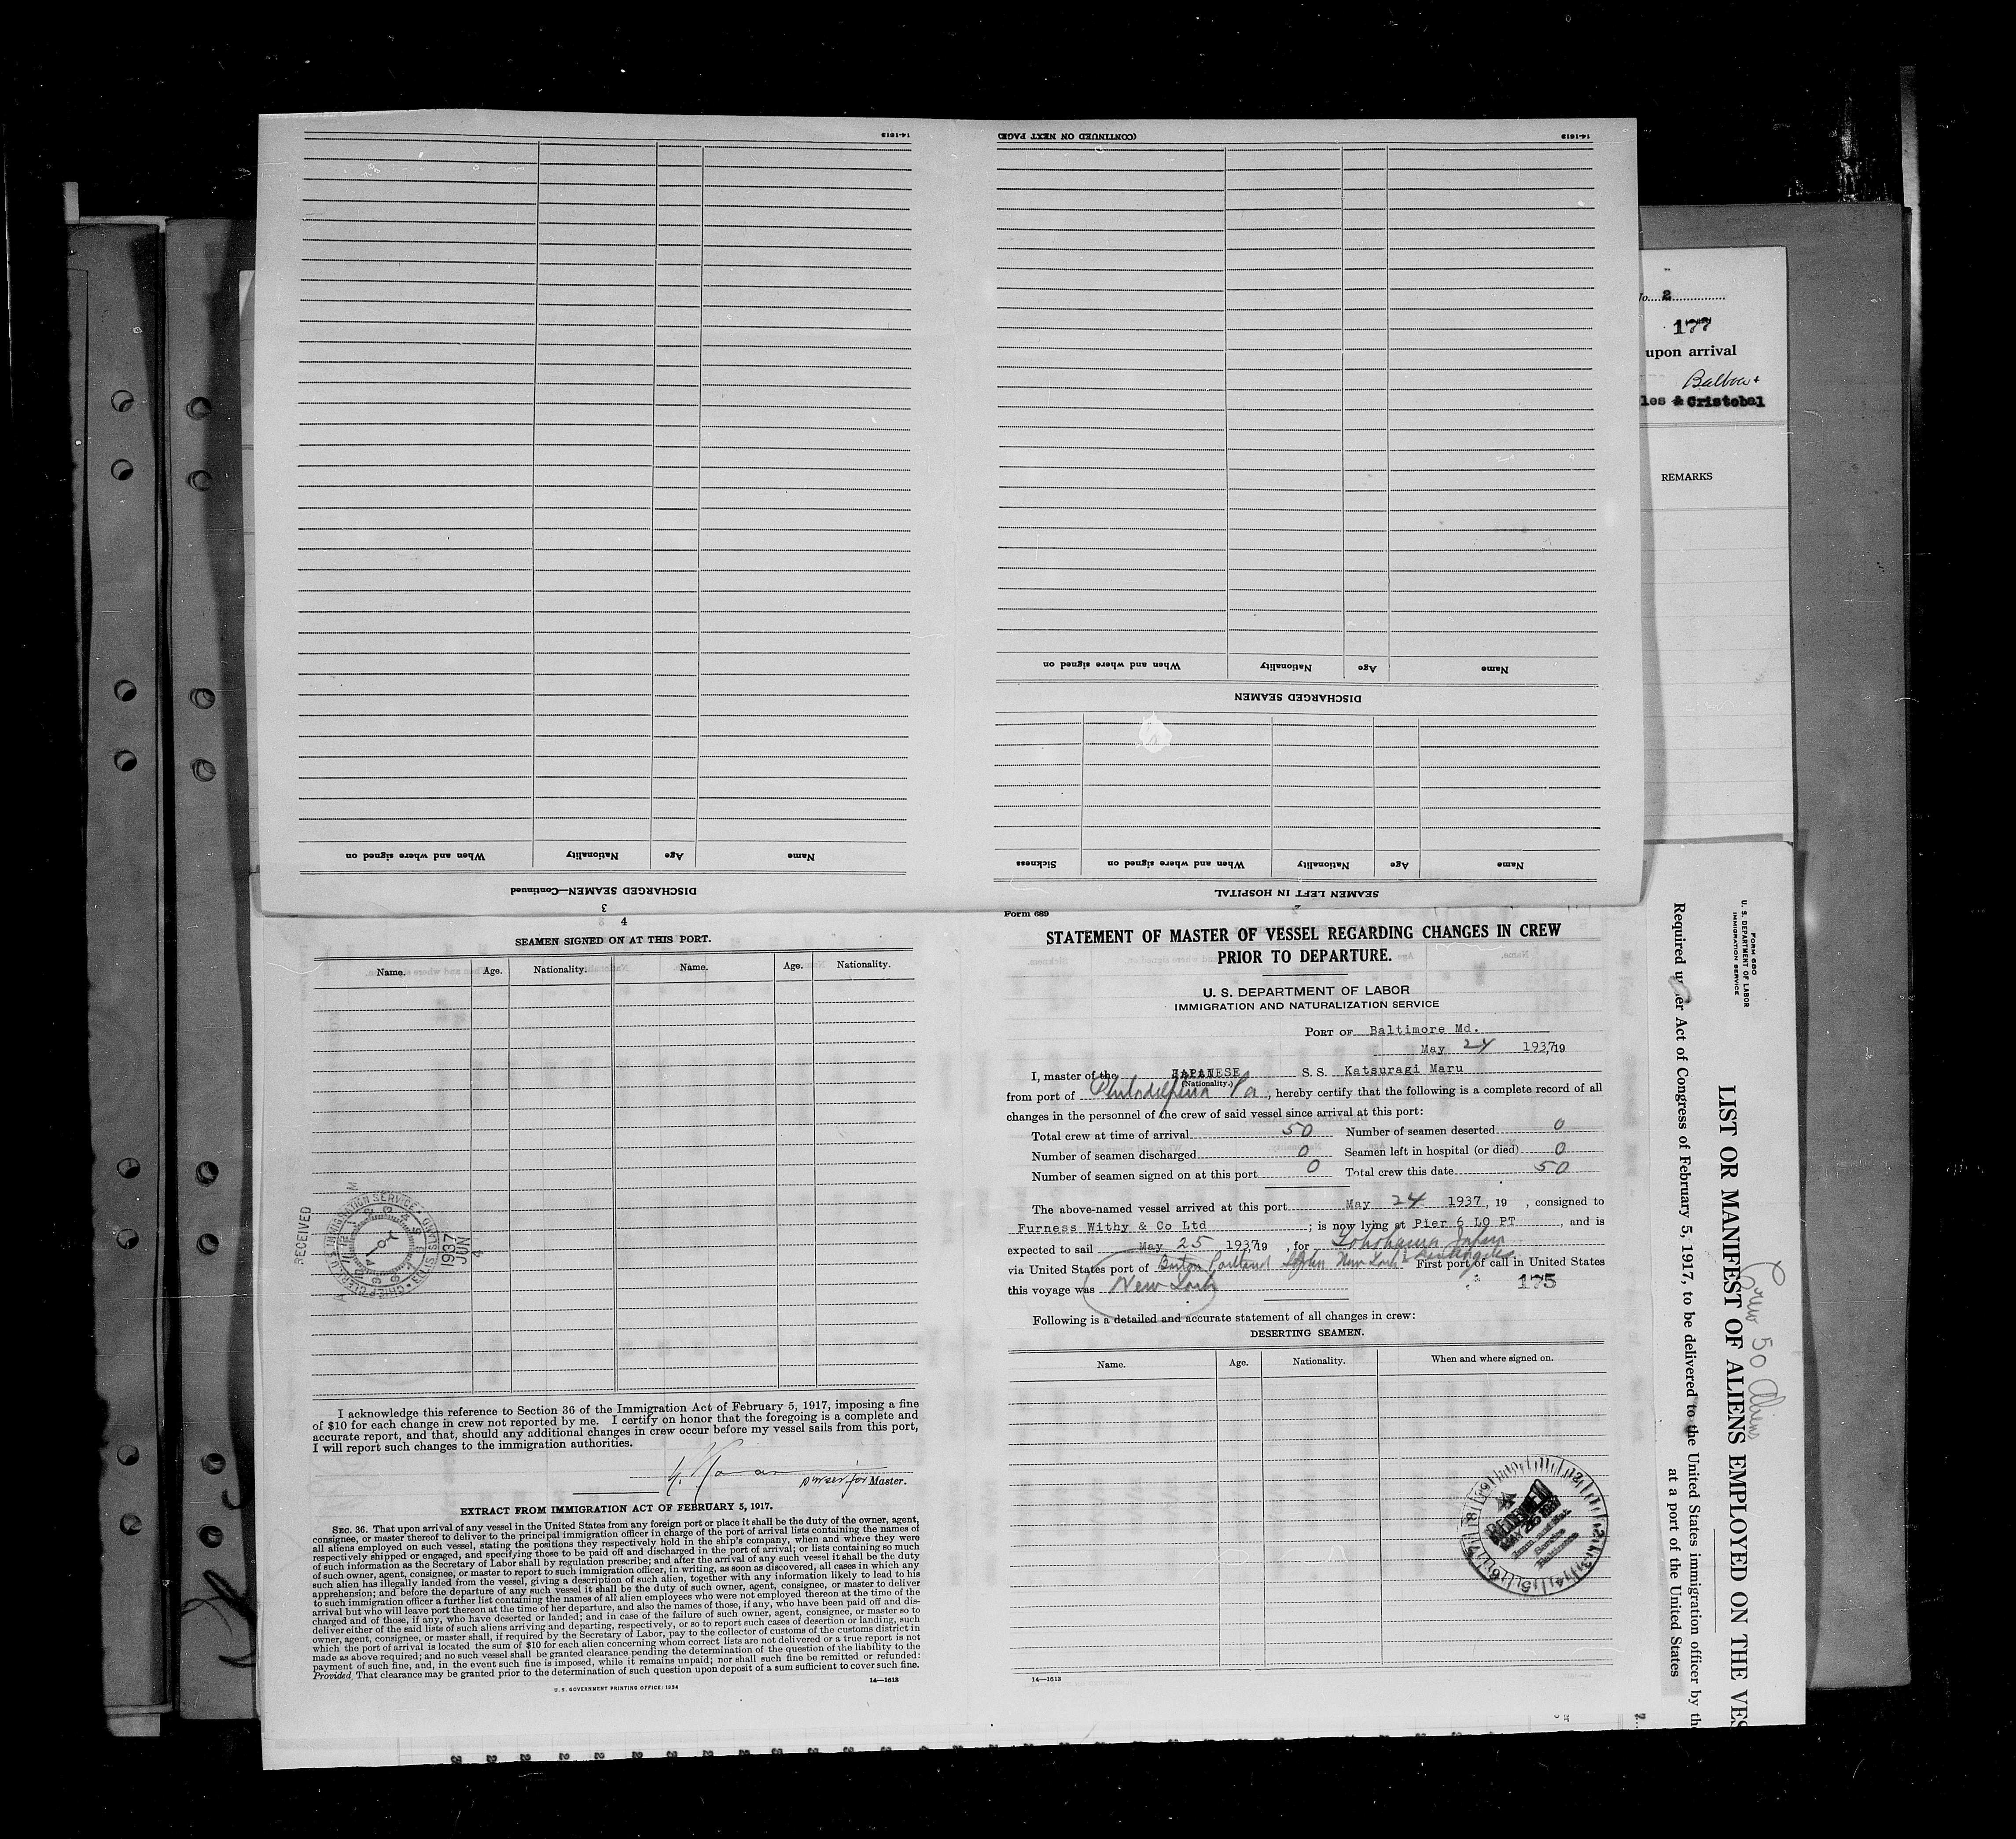 14-1613
(CONTINUED ON NEXT PAGE)
14-1613
When and where signed on
Nationality
Age
Name
DISCHARGED SEAMEN
Sickness
When and where signed on
Nationality
Age
Name
SEAMEN LEFT IN HOSPITAL
When and where signed on
Nationality
Age
Name
DISCHARGED SEAMEN—Continued
3
2
177
upon arrival
Balboa +
les & Cristobal
REMARKS
4
SEAMEN SIGNED ON AT THIS PORT.
Name. Age. Nationality. Name. Age. Nationality.
RECEIVED
1937
JUN
4
I acknowledge this reference to Section 36 of the Immigration Act of February 5, 1917, imposing a fine
of $10 for each change in crew not reported by me. I certify on honor that the foregoing is a complete and
accurate report, and that, should any additional changes in crew occur before my vessel sails from this port,
I will report such changes to the immigration authorities.
purser for Master.
EXTRACT FROM IMMIGRATION ACT OF FEBRUARY 5, 1917.
SEC. 36. That upon arrival of any vessel in the United States from any foreign port or place it shall be the duty of the owner, agent,
consignee, or master thereof to deliver to the principal immigration officer in charge of the port of arrival lists containing the names of
all aliens employed on such vessel, stating the positions they respectively hold in the ship's company, when and where they were
respectively shipped or engaged, and specifying those to be paid off and discharged in the port of arrival; or lists containing so much
of such information as the Secretary of Labor shall by regulation prescribe; and after the arrival of any such vessel it shall be the duty
of such owner, agent, consignee, or master to report to such immigration officer, in writing, as soon as discovered, all cases in which any
such alien has illegally landed from the vessel, giving a description of such alien, together with any information likely to lead to his
apprehension; and before the departure of any such vessel it shall be the duty of such owner, agent, consignee, or master to deliver
to such immigration officer a further list containing the names of all alien employees who were not employed thereon at the time of the
arrival but who will leave port thereon at the time of her departure, and also the names of those, if any, who have been paid off and dis-
charged and of those, if any, who have deserted or landed; and in case of the failure of such owner, agent, consignee, or master so to
deliver either of the said lists of such aliens arriving and departing, respectively, or so to report such cases of desertion or landing, such
owner, agent, consignee, or master shall, if required by the Secretary of Labor, pay to the collector of customs of the customs district in
which the port of arrival is located the sum of $10 for each alien concerning whom correct lists are not delivered or a true report is not
made as above required; and no such vessel shall be granted clearance pending the determination of the question of the liability to the
payment of such fine, and, in the event such fine is imposed, while it remains unpaid; nor shall such fine be remitted or refunded:
Provided, That clearance may be granted prior to the determination of such question upon deposit of a sum sufficient to cover such fine.
U. S. GOVERNMENT PRINTING OFFICE: 1934
14—1613
Form 689
STATEMENT OF MASTER OF VESSEL REGARDING CHANGES IN CREW
PRIOR TO DEPARTURE.
U. S. DEPARTMENT OF LABOR
IMMIGRATION AND NATURALIZATION SERVICE
PORT OF Baltimore Md.
May 24 1937, 19
I, master of the JAPANESE S. S. Katsuragi Maru
(Nationality.)
from port of Philadelphia Pa, hereby certify that the following is a complete record of all
changes in the personnel of the crew of said vessel since arrival at this port:
Total crew at time of arrival 50 Number of seamen deserted 0
Number of seamen discharged 0 Seamen left in hospital (or died) 0
Number of seamen signed on at this port 0 Total crew this date 50
The above-named vessel arrived at this port May 24 1937, 19 , consigned to
Furness Withy & Co Ltd ; is now lying at Pier 6 LO PT , and is
expected to sail May 25 1937, 19 , for Yokohama Japan
via United States port of Boston Portland St John New York & Los Angeles First port of call in United States
this voyage was New York
175
Following is a detailed and accurate statement of all changes in crew:
DESERTING SEAMEN.
Name. Age. Nationality. When and where signed on.
RECEIVED
MAY 26 1937
Baltimore
14—1613
FORM 680
U. S. DEPARTMENT OF LABOR
IMMIGRATION SERVICE
Crew 50 Aliens
LIST OR MANIFEST OF ALIENS EMPLOYED ON THE VES
Required under Act of Congress of February 5, 1917, to be delivered to the United States immigration officer by th
at a port of the United States